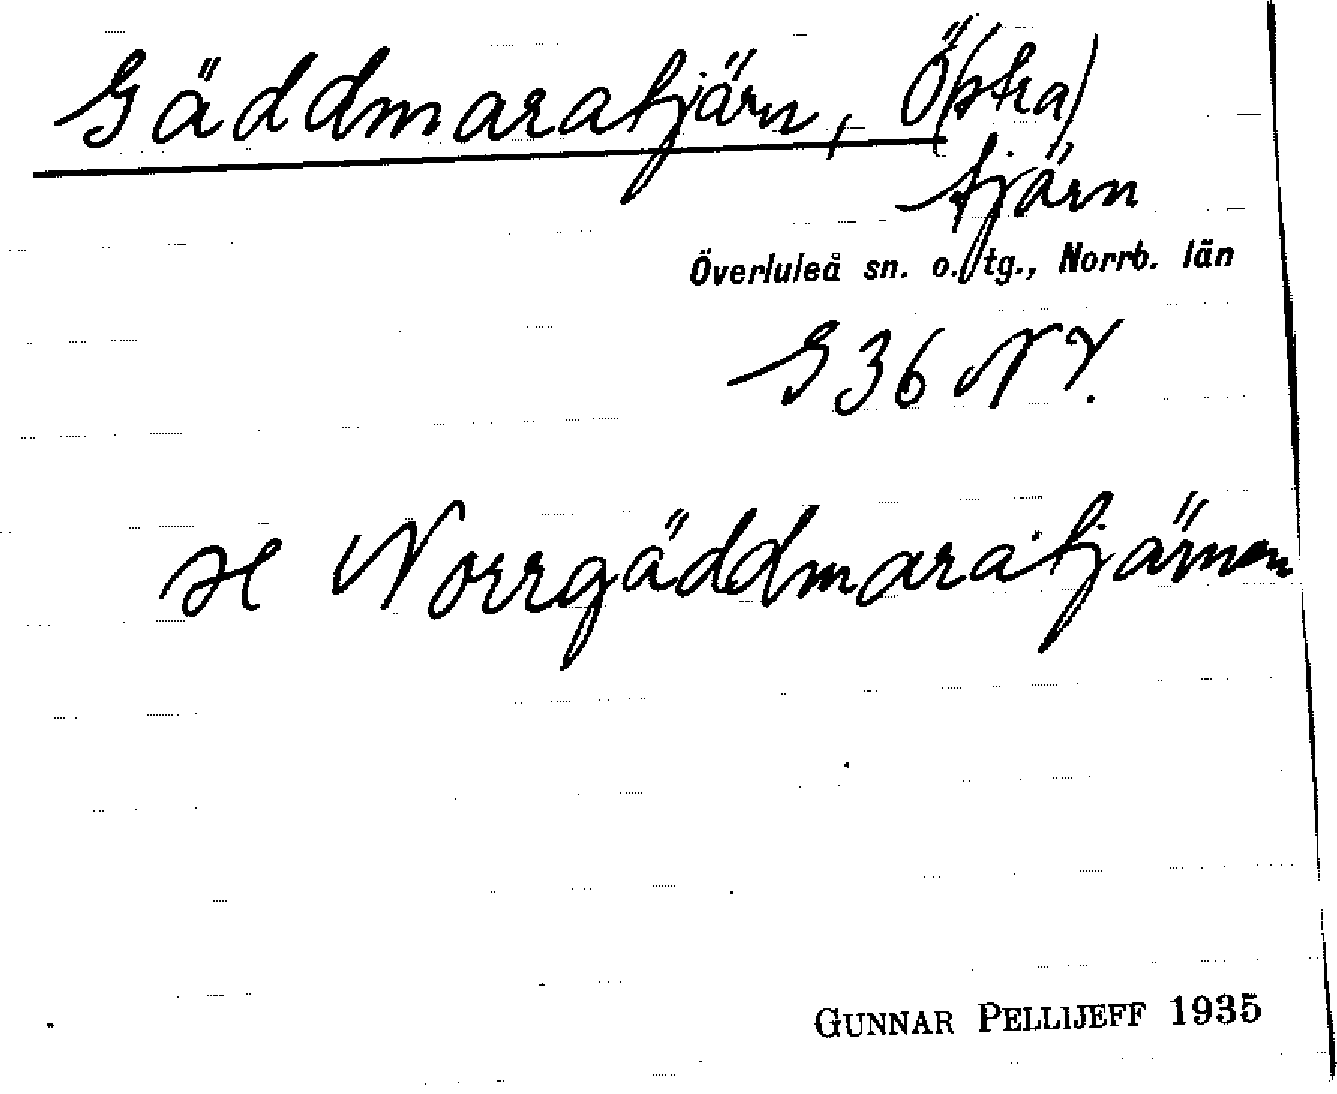 Gäddmaratjärn, Ö(stra)
tjärn
Överluleå sn. o. tg., Norrb. län
G 36 NY.
se Norrgäddmaratjärnen
GUNNAR PELLIJEFF 1935